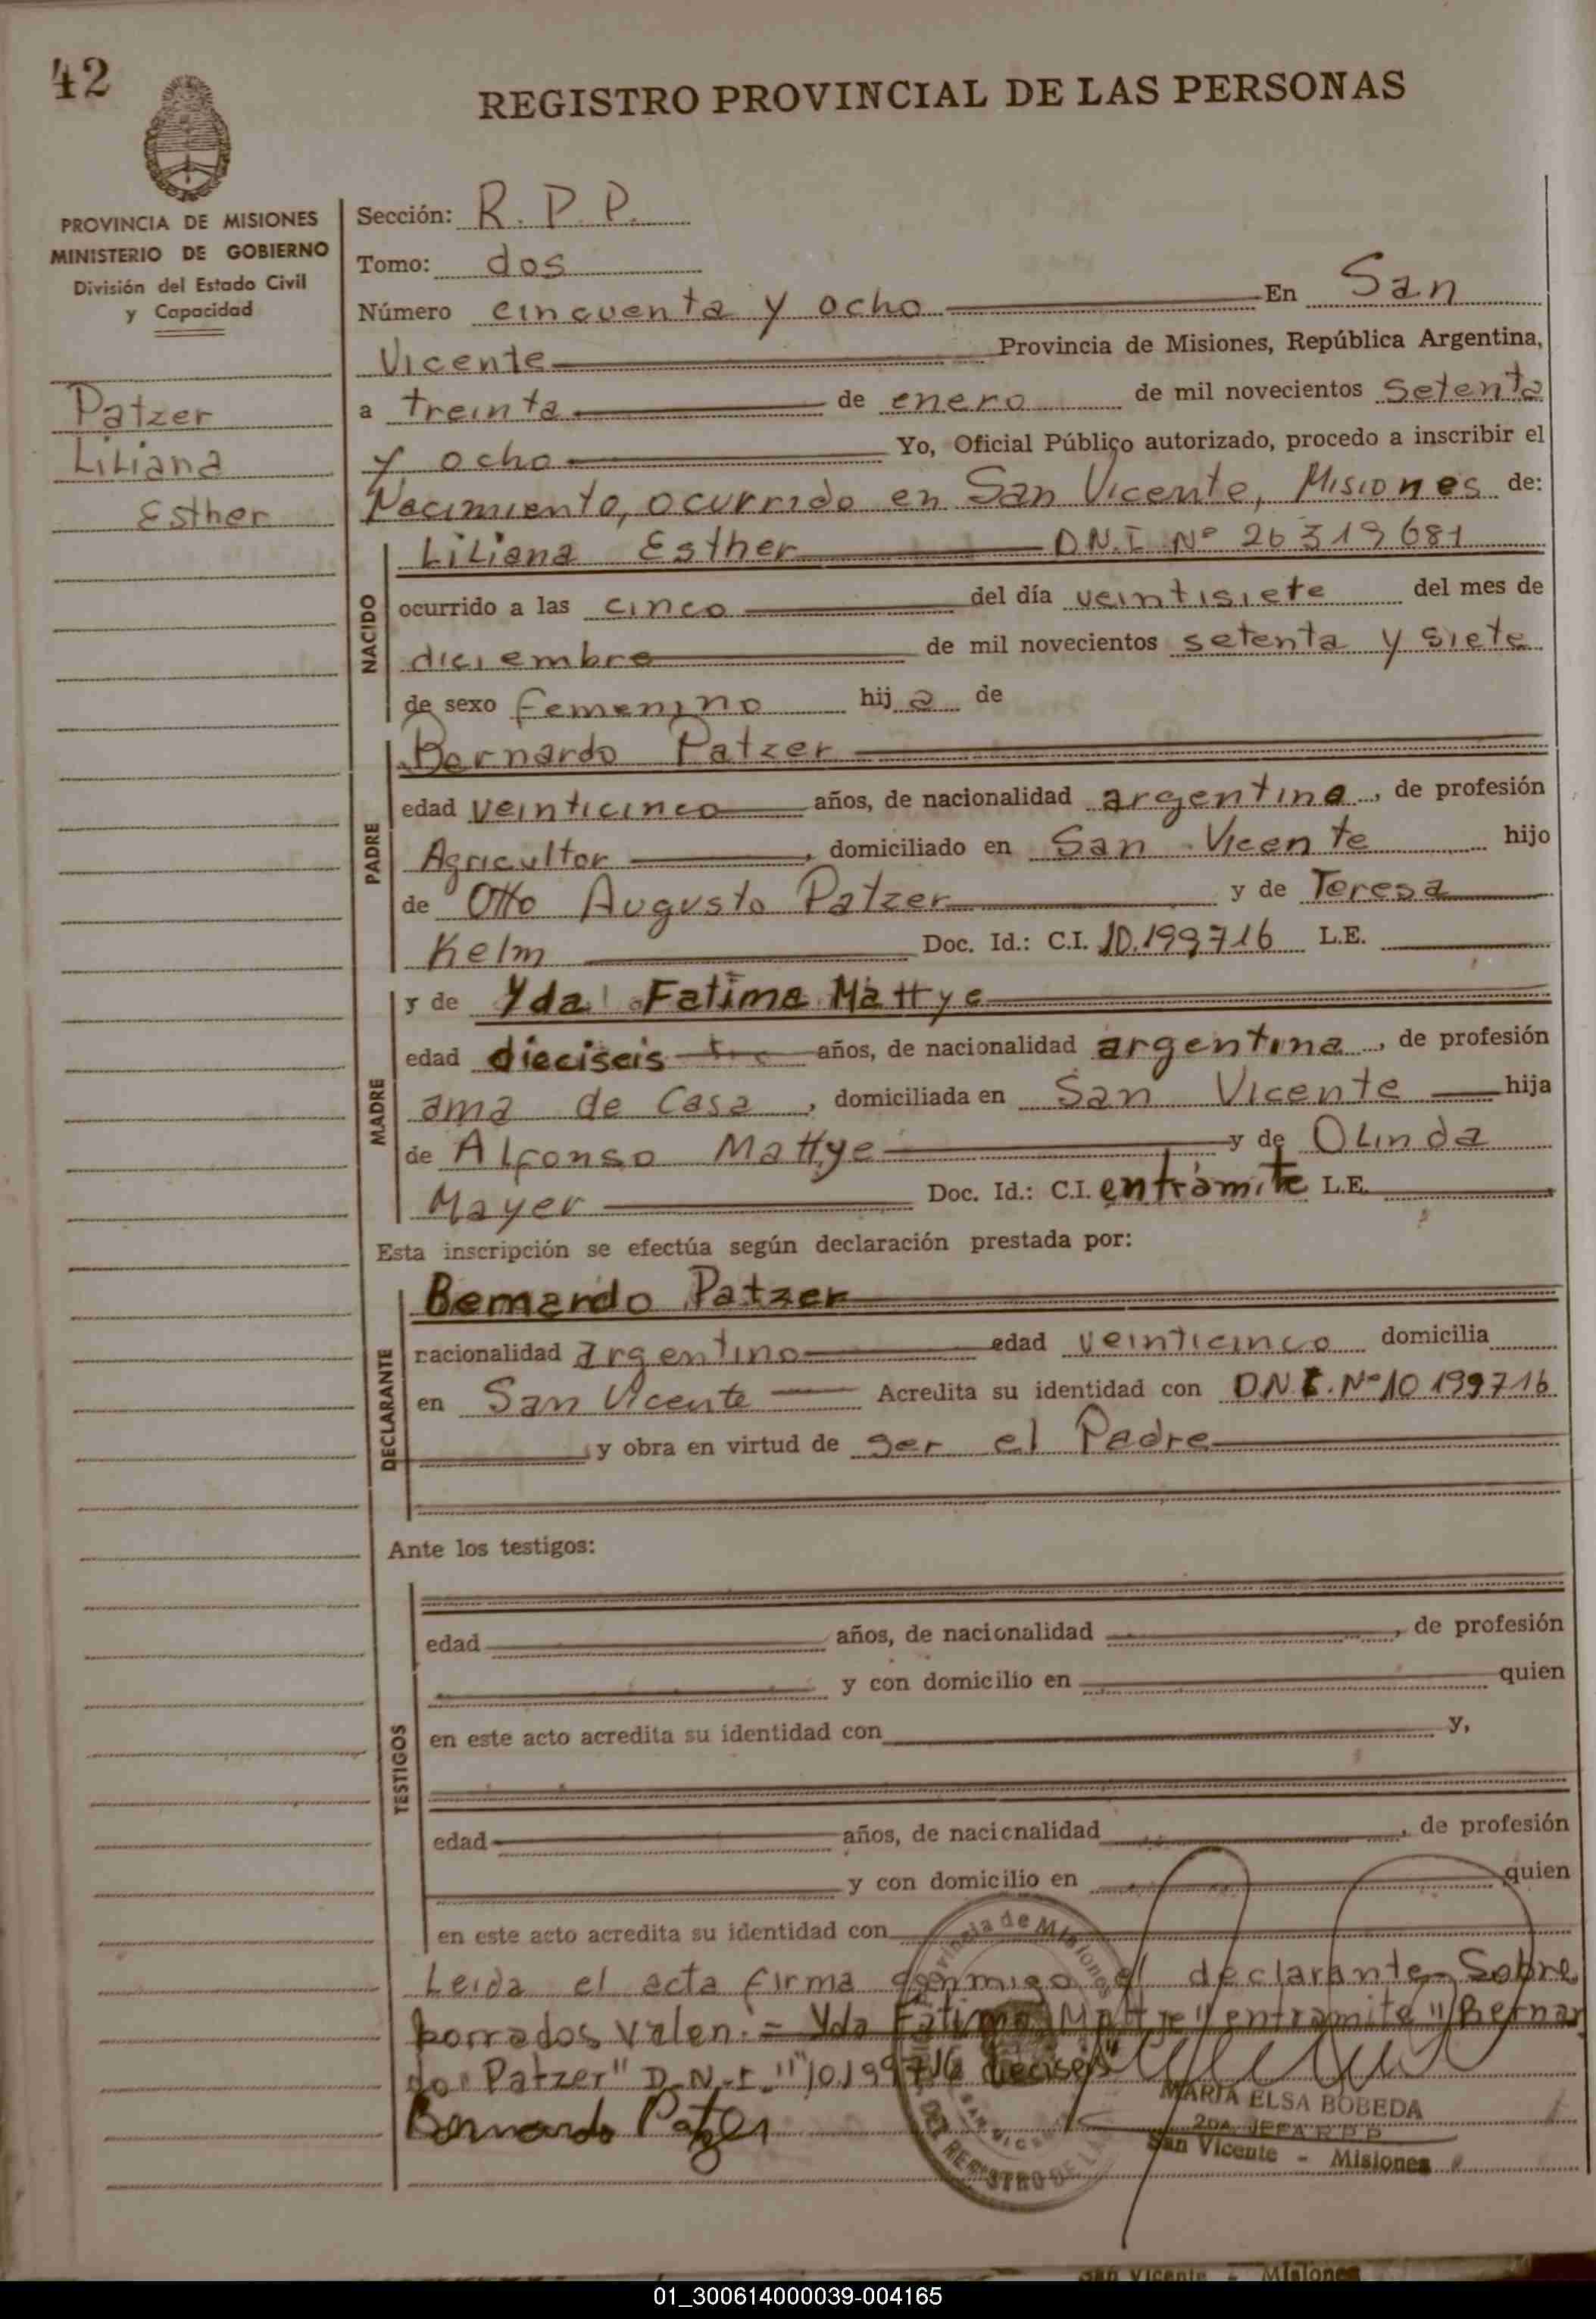 42
REGISTRO PROVINCIAL DE LAS PERSONAS
PROVINCIA DE MISIONES
MINISTERIO DE GOBIERNO
División del Estado Civil
y Capacidad
Patzer
Liliana
Esther
Sección: R.P.P.
Tomo: dos
Número cincuenta y ocho En San
Vicente Provincia de Misiones, República Argentina,
a treinta de enero de mil novecientos setenta
y ocho Yo, Oficial Público autorizado, procedo a inscribir el
Nacimiento, ocurrido en San Vicente, Misiones de:
NACIDO
Liliana Esther D.N.I. Nº 26 319 681
ocurrido a las cinco del día veintisiete del mes de
diciembre de mil novecientos setenta y siete
de sexo femenino hij a de
PADRE
Bernardo Patzer
edad veinticinco años, de nacionalidad argentina, de profesión
Agricultor, domiciliado en San Vicente hijo
de Otto Augusto Patzer y de Teresa
Kelm Doc. Id.: C.I. 10.199716 L.E.
MADRE
y de Yda Fatima Mattye
edad dieciseis años, de nacionalidad argentina, de profesión
ama de casa, domiciliada en San Vicente hija
de Alfonso Mattye y de Olinda
Mayer Doc. Id.: C.I. entràmite L.E.
Esta inscripción se efectúa según declaración prestada por:
DECLARANTE
Bernardo Patzer
nacionalidad argentino edad veinticinco domicilia
en San Vicente Acredita su identidad con D.N.I. Nº 10 199716
y obra en virtud de ser el Padre
Ante los testigos:
TESTIGOS
edad años, de nacionalidad , de profesión
y con domicilio en quien
en este acto acredita su identidad con y,
edad años, de nacionalidad , de profesión
y con domicilio en quien
en este acto acredita su identidad con
Leida el acta firma conmigo el declarante-Sobre
borrados valen:= Yda Fatima Mattye" entramite" Bernar
do Patzer" D.N.I." "10.199716 dieciseis"
Bernardo Patzer
Provincia de Misiones
DEL REGISTRO DE LA
SAN VICENTE
MARIA ELSA BOBEDA
2DA. JEFA R P P
San Vicente - Misiones
San Vicente - Misiones
01_300614000039-004165